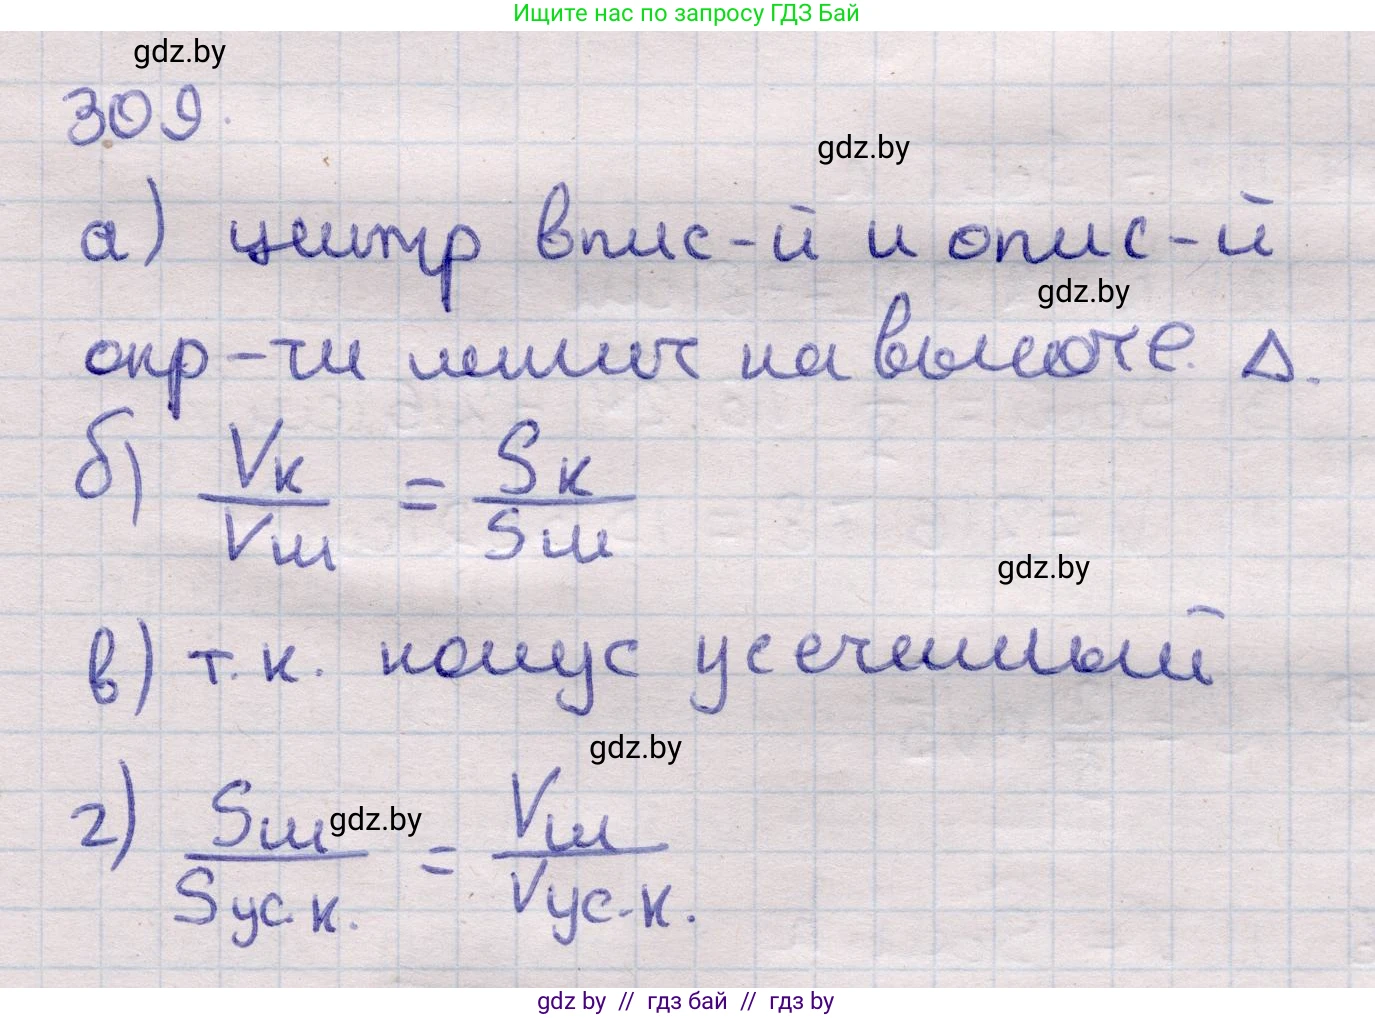 Ищите нас по запросу ГДЗ Бай
gdz.by
309.
gdz.by
а) центр впис-й и опис-й
gdz.by
окр-ти лежит на высоте Δ.
б) Vк/Vш = Sк/Sш
gdz.by
в) т.к. конус усеченный
gdz.by
г) Sш/Sус.к. = Vш/Vус.к.
gdz.by
gdz by // гдз бай // гдз by